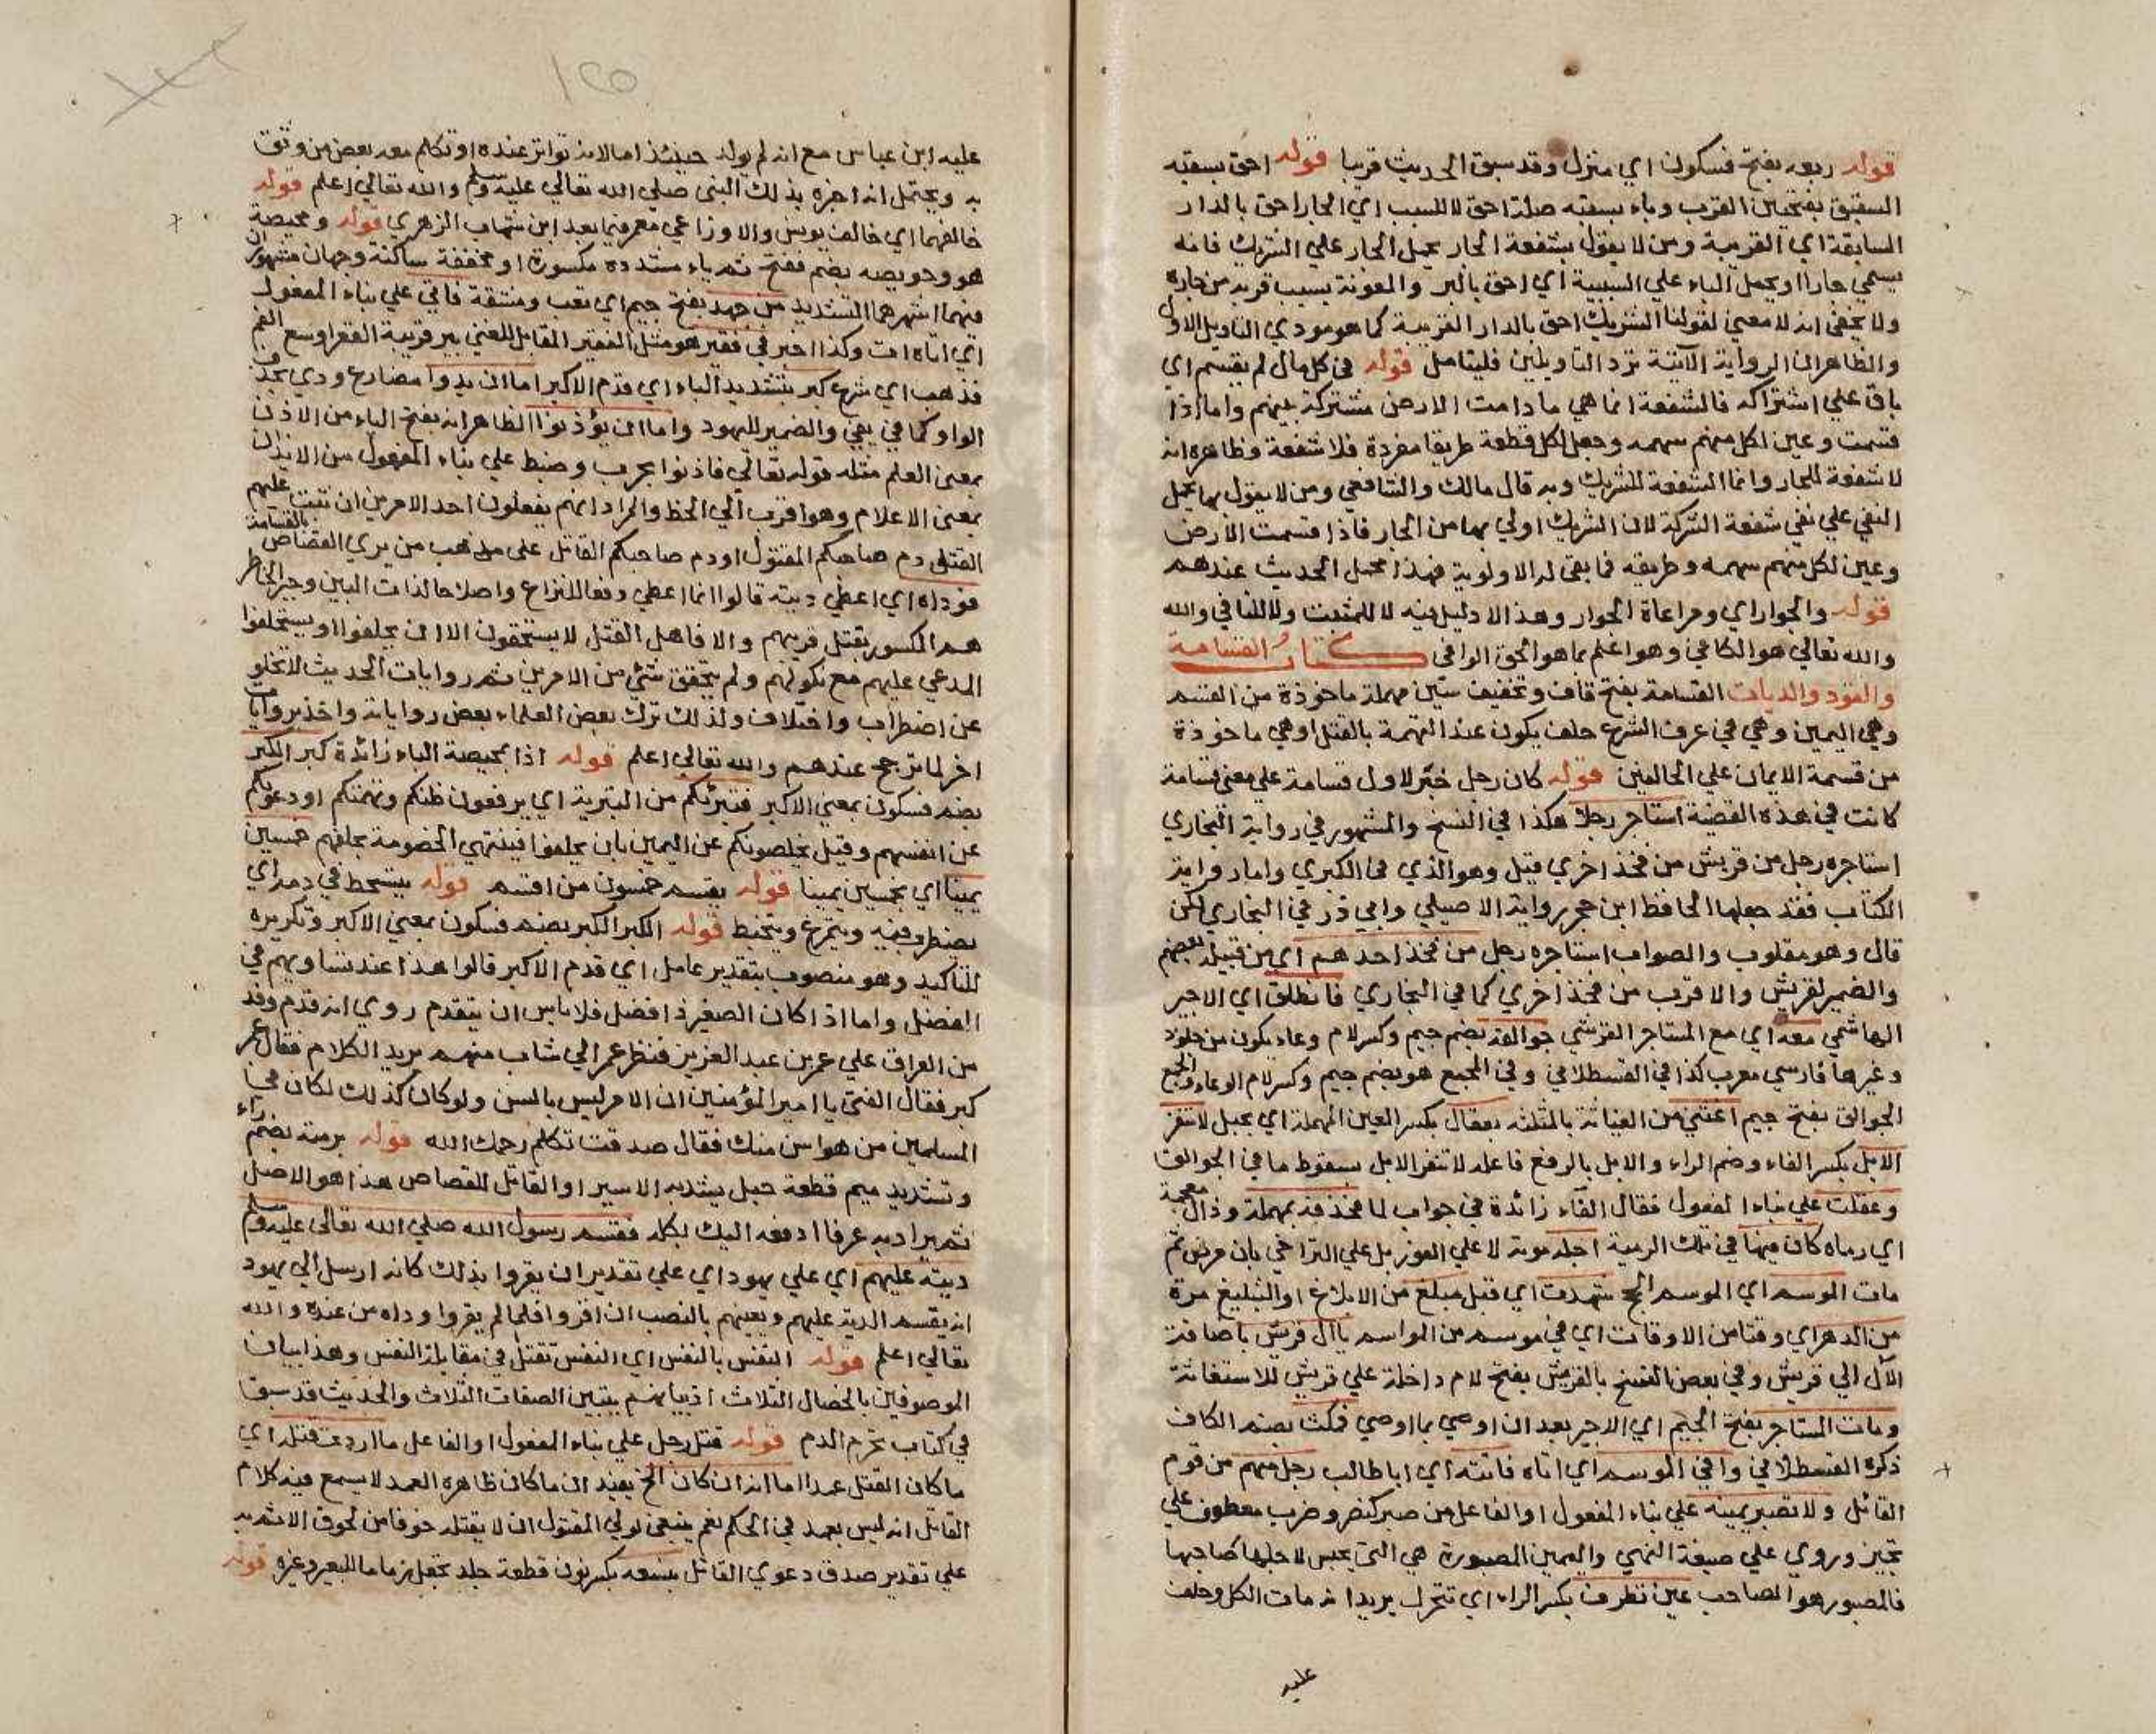 قوله ربعه بفتح فسكون اي منزل وقد سبق الحديث قريبا قوله احق بسقبه
السقب بفتحتين القرب وباء بسقبه صلة احق لا للسبب اي الجار احق بالدار
السابقة اي القريبة ومن لا يقول بشفعة الجار يحمل الجار علي الشريك فانه
يسمي جارا او يحمل الباء علي السببية اي احق بالبر والمعونة بسبب قربه من جاره
ولا يخفي انه لا معني لقولنا الشريك احق بالدار القريبة كما هو مودي التاويل الاول
والظاهر ان الرواية الآتية ترد التاويلين فليتامل قوله في كل مال لم يقسم اي
باق علي اشتراكه فالشفعة انما هي ما دامت الارض مشتركة بينهم واما اذا
قسمت وعين لكل منهم سهمه وجعل لكل قطعة طريقا مفردة فلا شفعة وظاهره انه
لا شفعة للجار وانما الشفعة للشريك وبه قال مالك والشافعي ومن لا يقول بها يحمل
النفي علي نفي شفعة الشركة لان الشريك اولي بها من الجار فاذا قسمت الارض
وعين لكل منهم سهمه وطريقه فما بقي له الاولوية فهذا محمل الحديث عندهم
قوله والجوار اي ومراعاة الجوار وهذا لا دليل فيه لا للمثبت ولا للنافي والله
والله تعالي هو الكافي وهو اعلم بما هو الحق الوافي كتاب القسامة
والقود والديات القسامة بفتح قاف وتخفيف سين مهملة ماخوذة من القسم
وهي اليمين وهي في عرف الشرع حلف يكون عند التهمة بالقتل او هي ماخوذة
من قسمة الايمان علي الحالفين قوله كان رجل خبر لاول قسامة علي معني قسامة
كانت في هذه القضية استاجر رجلا هكذا في النسخ والمشهور في رواية البخاري
استاجره رجل من قريش من فخذ اخري قيل وهو الذي في الكبري واما رواية
الكتاب فقد جعلها الحافظ ابن حجر رواية الاصيلي وابي ذر في البخاري لكن
قال وهو مقلوب والصواب استاجره رجل من فخذ احدهم اي من قبيلة بعضهم
والضمير لقريش والاقرب من فخذ اخري كما في البخاري فانطلق اي الاجير
الهاشمي معه اي مع المستاجر القرشي جوالقه بضم جيم وكسر لام وعاء يكون من جلود
وغيرها فارسي معرب كذا في القسطلاني وفي المجمع هو بضم جيم وكسر لام الوعاء والجمع
الجوالق بفتح جيم اغثني من الغياثة بالمثلثه بعقال بكسر العين المهملة اي بحبل لا تنفر
الابل بكسر الفاء وضم الراء والابل بالرفع فاعله لا تنفر الابل بسقوط ما في الجوالق
وعقلت علي بناء المفعول فقال الفاء زائدة في جواب لما فحذفه بمهملة وذال معجمة
اي رماه كان فيها في تلك الرمية اجله موته لا علي الفور بل علي التراخي بان مرض ثم
مات الموسم اي الموسم الحج شهدت اي قبل مبلغ من الابلاغ او التبليغ مرة
من الدهر اي وقتا من الاوقات اي في موسم من المواسم يا آل قريش باضافة
الآل الي قريش وفي بعض النسخ يالقريش بفتح لام داخلة علي قريش للاستغاثة
ومات المستاجر بفتح الجيم اي الاجير بعد ان اوصي بما اوصي فمكث بضم الكاف
ذكره القسطلاني وافي الموسم اي اتاه فاتته اي ابا طالب رجل منهم من قوم
القاتل ولا تصبر يمينه علي بناء المفعول او الفاعل من صبر كنصر وضرب معطوف علي
تجيز وروي علي صيغة النهي واليمين المصبورة هي التي يحبس لاجلها صاحبها
فالمصبور هو الصاحب عين تطرف بكسر الراء اي تتحرك يريد انه مات الكل وحلف
عليه
١٢٥
عليه ابن عباس مع انه لم يولد حينئذ اما لانه تواتر عنده او تكلم معه بعض من وثق
به ويحتمل انه اخبره بذلك النبي صلي الله تعالي عليه وسلم والله تعالي اعلم قوله
خالفهما اي خالف يونس والاوزاعي معمر فيما بعد ابن شهاب الزهري قوله ومحيصة
هو وحويصه بضم ففتح ثم ياء مشددة مكسورة او مخففة ساكنة وجهان مشهوران
فيهما اشهرهما التشديد من جهد بفتح جيم اي تعب ومشقة فاتي علي بناء المفعول
اي اتاه آت وكذا اخبر في فقير هو مثل الفقير المقابل للغني بير قريبة القعر اوسع الفم
فذهب اي شرع كبر بتشديد الباء اي قدم الاكبر اما ان يدوا مضارع ودي بحذف
الواو كما في يفي والضمير لليهود واما ان يؤذنوا الظاهر انه بفتح الياء من الاذن
بمعني العلم مثله قوله تعالي فاذنوا بحرب وضبط علي بناء المفعول من الايذان
بمعني الاعلام وهو اقرب الي الخط والمراد انهم يفعلون احد الامرين ان ثبت عليهم
القتل دم صاحبكم المقتول او دم صاحبكم القاتل علي مذهب من يري القصاص بالقسامة
فوداه اي اعطي ديته قالوا انما اعطي دفعا للنزاع واصلاحا لذات البين وجبر الخاطر
هم المكسور بقتل قريبهم والا فاهل القتل لا يستحقون الا ان يحلفوا او يستحلفوا
المدعي عليهم مع نكولهم ولم يتحقق شئ من الامرين ثم روايات الحديث لا تخلو
عن اضطراب واختلاف ولذلك ترك بعض العلماء بعض رواياته واخذ بروايات
اخر لما ترجح عندهم والله تعالي اعلم قوله اذا بمحيصة الباء زائدة كبر الكبر
بضم فسكون بمعني الاكبر فتبرئكم من التبرية اي يرفعون ظنكم وتهمتكم او دعوتكم
عن انفسهم وقيل يخلصونكم عن اليمين بان يحلفوا فينتهي الخصومة بحلفهم خمسين
يمينا اي بخمسين يمينا قوله يقسم خمسون من اقسم قوله يتشحط في دمه اي
يضطرب فيه ويتمرغ ويتخبط قوله الكبر الكبر بضم فسكون بمعني الاكبر وتكريره
للتاكيد وهو منصوب بتقدير عامل اي قدم الاكبر قالوا هذا عند تساويهم في
الفضل واما اذا كان الصغير ذا فضل فلا باس ان يتقدم روي انه قدم وفد
من العراق علي عمر بن عبد العزيز فنظر عمر الي شاب منهم يريد الكلام فقال عمر
كبر فقال الفتي يا امير المؤمنين ان الامر ليس بالسن ولو كان كذلك لكان في
المسلمين من هو اسن منك فقال صدقت تكلم رحمك الله قوله برمته بضم راء
وتشديد ميم قطعة حبل يشد به الاسير او القاتل للقصاص هذا هو الاصل
ثم يراد به عرفا ادفعه اليك بكله فقسم رسول الله صلي الله تعالي عليه وسلم
ديته عليهم اي علي يهود اي علي تقدير ان يقروا بذلك كانه ارسل الي يهود
انه يقسم الدية عليهم ويعينهم بالنصب ان اقروا فلما لم يقروا وداه من عنده والله
تعالي اعلم قوله النفس بالنفس اي النفس تقتل في مقابلة النفس وهذا بيان
الموصوفين بالخصال الثلاث اذ ببيانهم يتبين الصفات الثلاث والحديث قد سبق
في كتاب تحريم الدم قوله قتل رجل علي بناء المفعول او الفاعل ما اردت قتله اي
ما كان القتل عمدا اما انه ان كان الخ يفيد ان ما كان ظاهره العمد لا يسمع فيه كلام
القاتل انه ليس بعمد في الحكم نعم ينبغي لولي المقتول ان لا يقتله خوفا من لحوق الاثم به
علي تقدير صدق دعوي القاتل بنسعه بكسر نون قطعة جلد تجعل زماما للبعير وغيره قوله